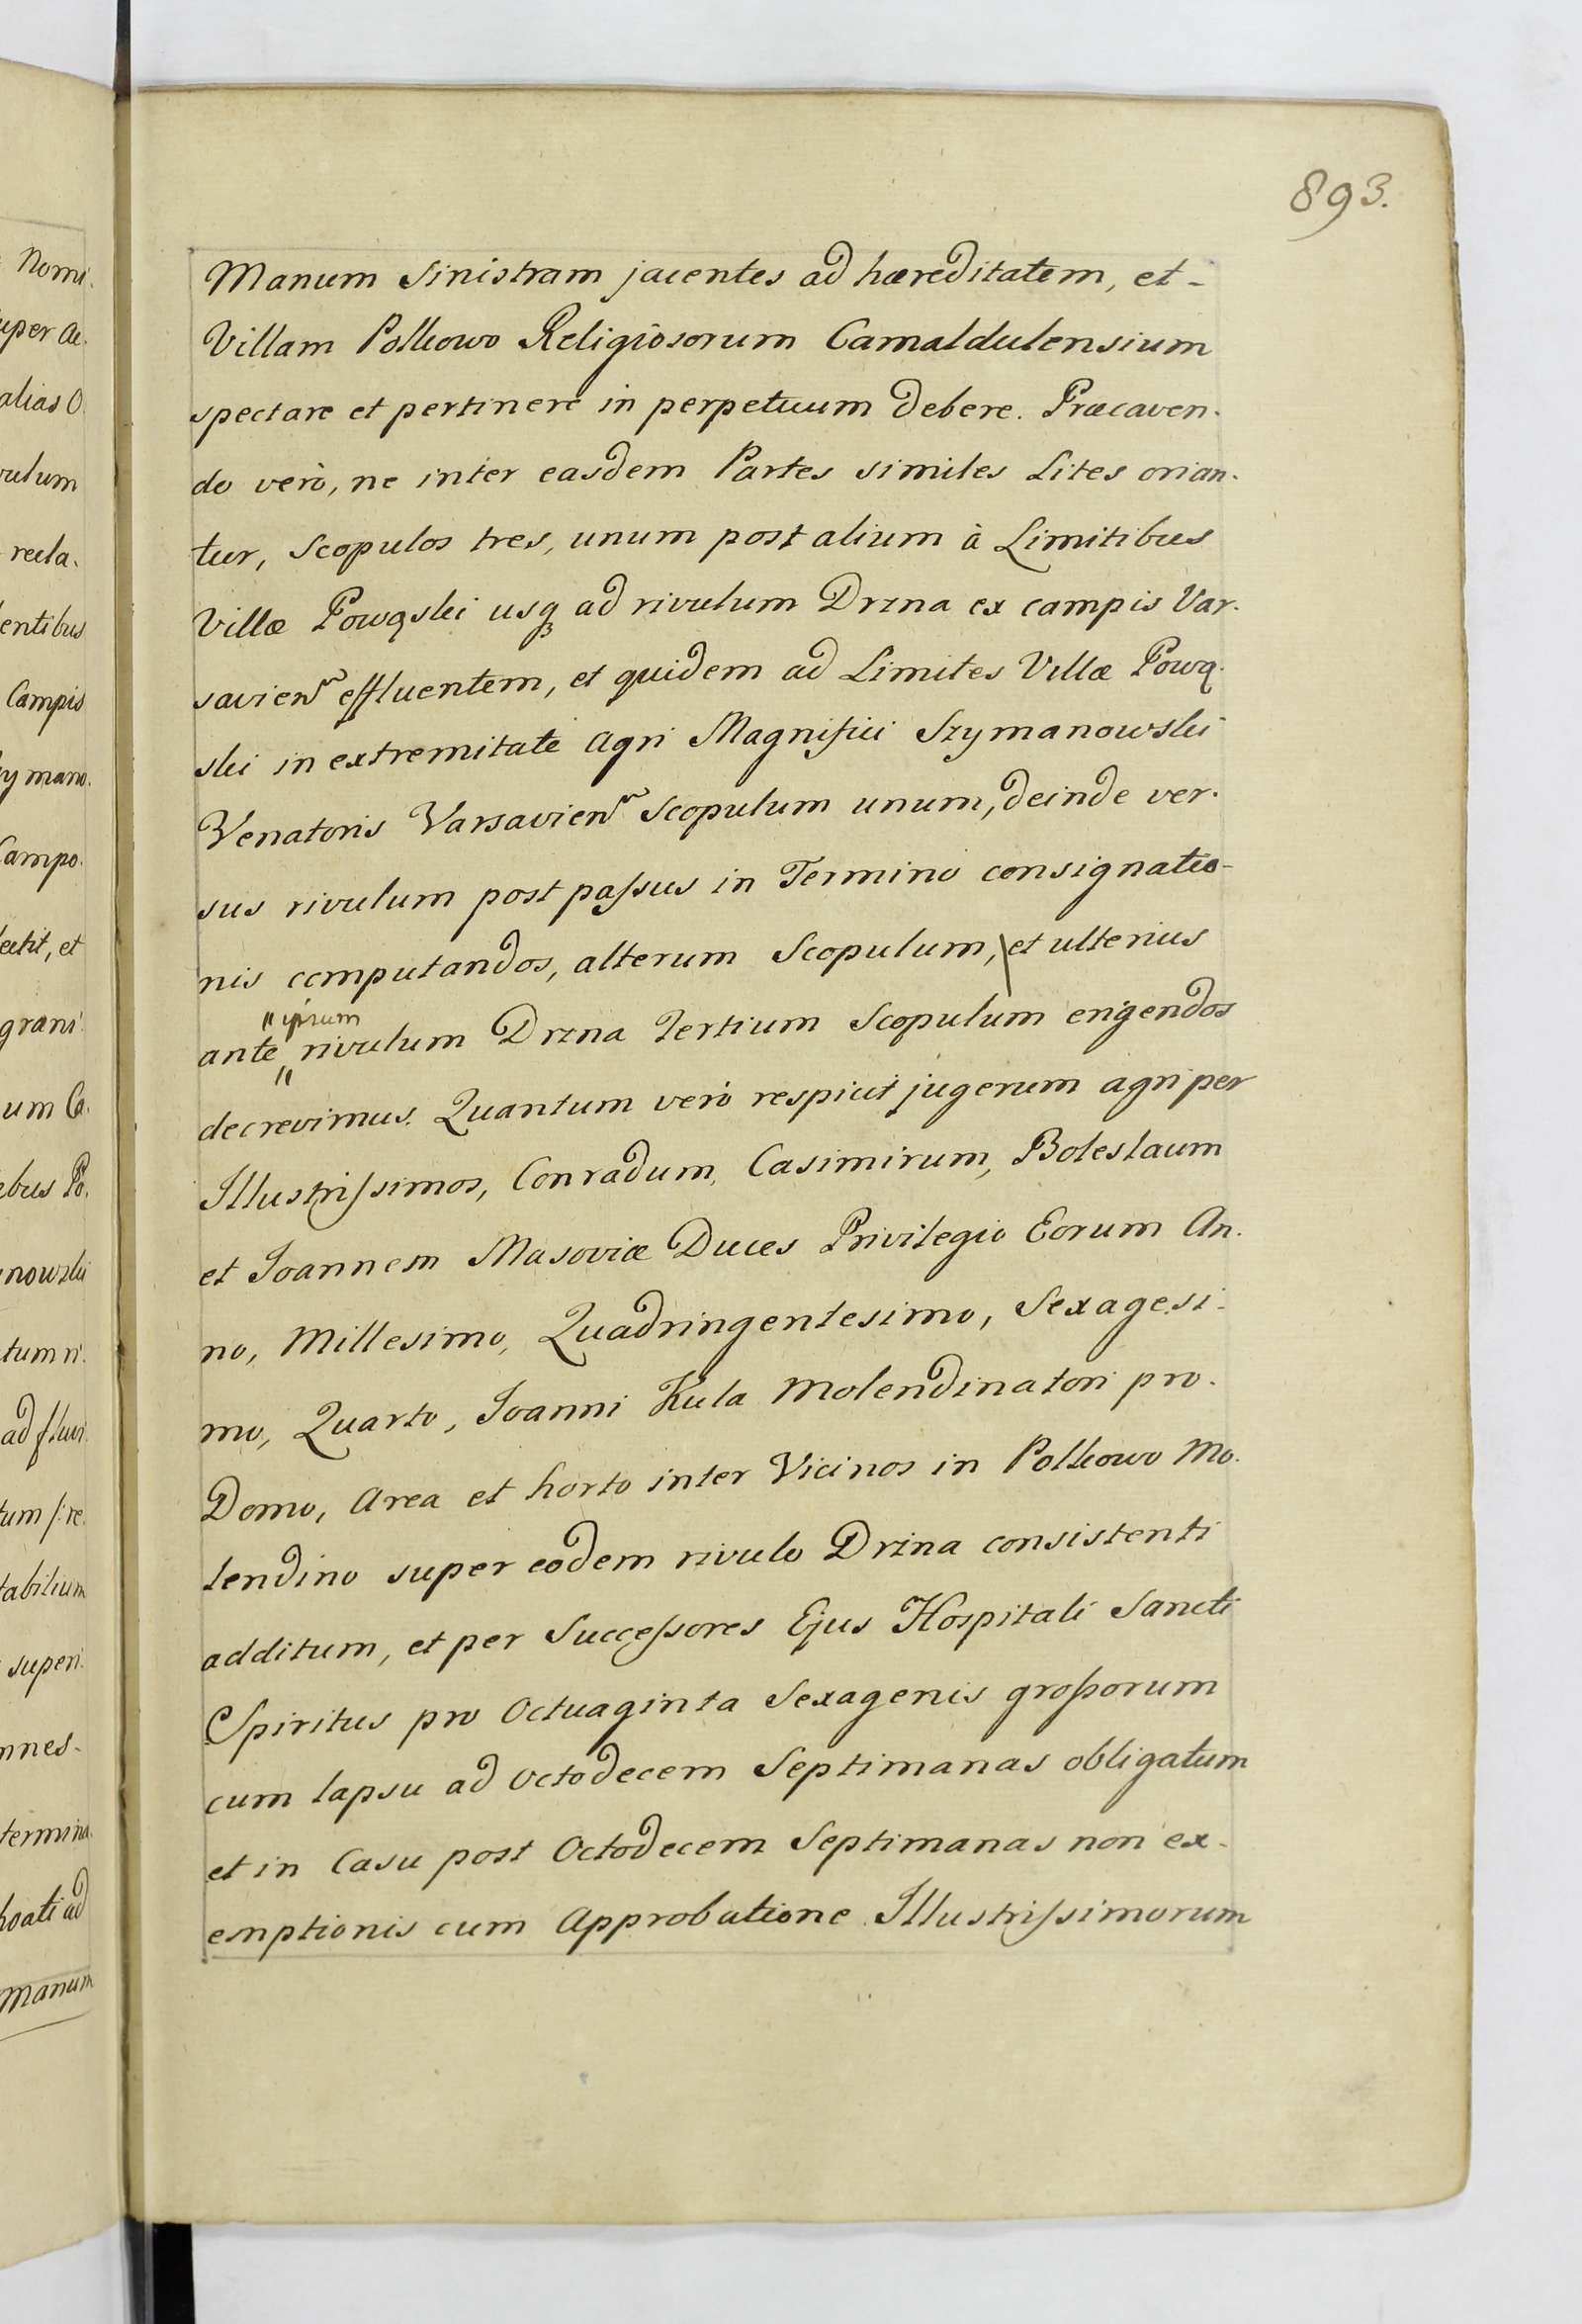 893.
Manum Sinistram jacentes ad hæreditatem, et -
Villam Polkowo Religiosorum Camaldulensium
spectare et pertinere in perpetuum debere. Præcaven-
do verò, ne inter easdem Partes similes Lites orian-
tur, Scopulos tres, unum post alium à Limitibus
Villæ Powąski usq; ad rivulum Drzna ex campis Var-
savien~ effluentem, et quidem ad Limites Villæ Pową-
ski in extremitate Agri Magnifici Szymanowski
Venatoris Varsavien~ Scopulum unum, deinde ver-
sus rivulum post paſsus in Termino consignatio-
nis computandos, alterum Scopulum, et ulterius
ante "ipsum" rivulum Drzna Tertium Scopulum erigendos
decrevimus. Quantum verò respicit jugerum agri per
Illustriſsimos, Conradum, Casimirum, Boleslaum
et Joannem Masoviæ Duces Privilegio Eorum An-
no, Millesimo, Quadringentesimo, Sexagesi-
mo, Quarto, Joanni Kula Molendinatori pro-
Domo, Area et horto inter Vicinos in Polkowo Mo-
lendino super eodem rivulo Drzna consistenti
additum, et per Succeſsores Ejus Hospitali Sancti
Spiritus pro Octuaginta Sexagenis groſsorum
cum lapsu ad Octodecem Septimanas obligatum
et in Casu post Octodecem Septimanas non ex-
emptionis cum Approbatione Illustriſsimorum